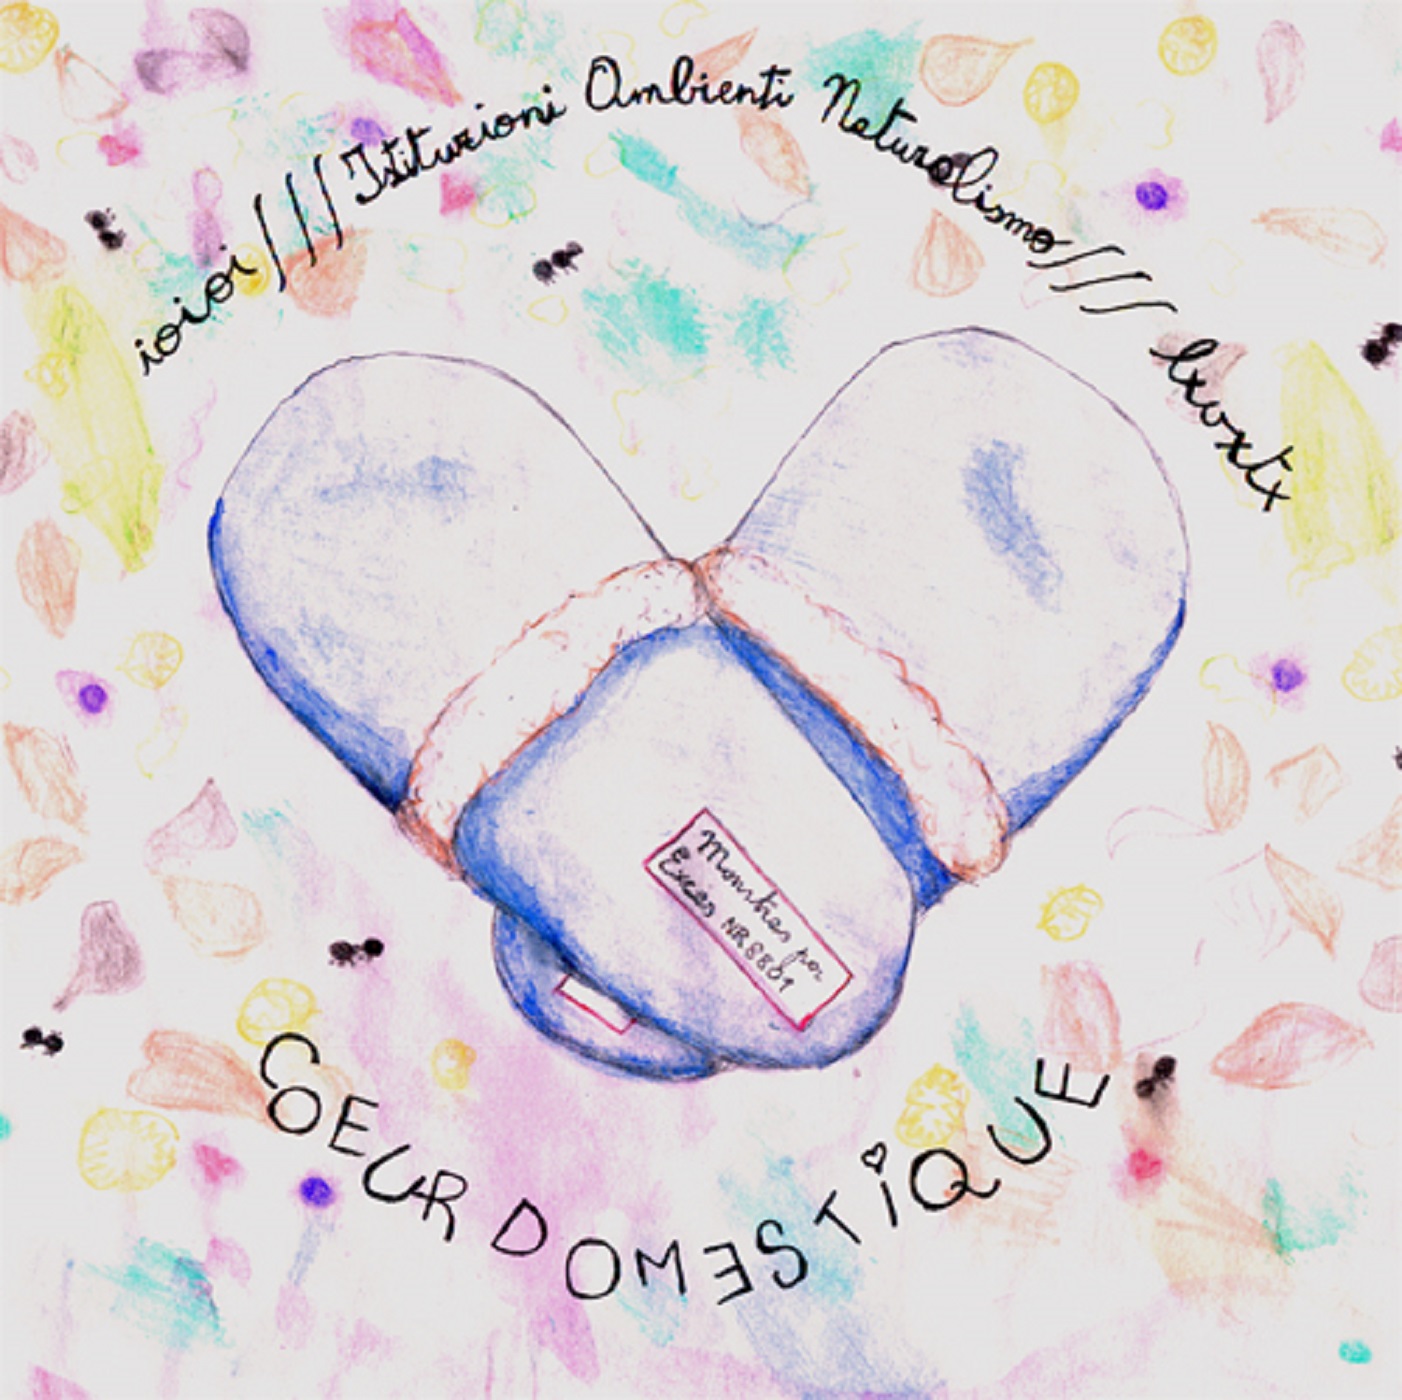 ioioi /// Istituzioni Ambienti Naturalismo /// lxvxtx
Monstres par
Excès NR 8801
COEUR DOMESTiQUE